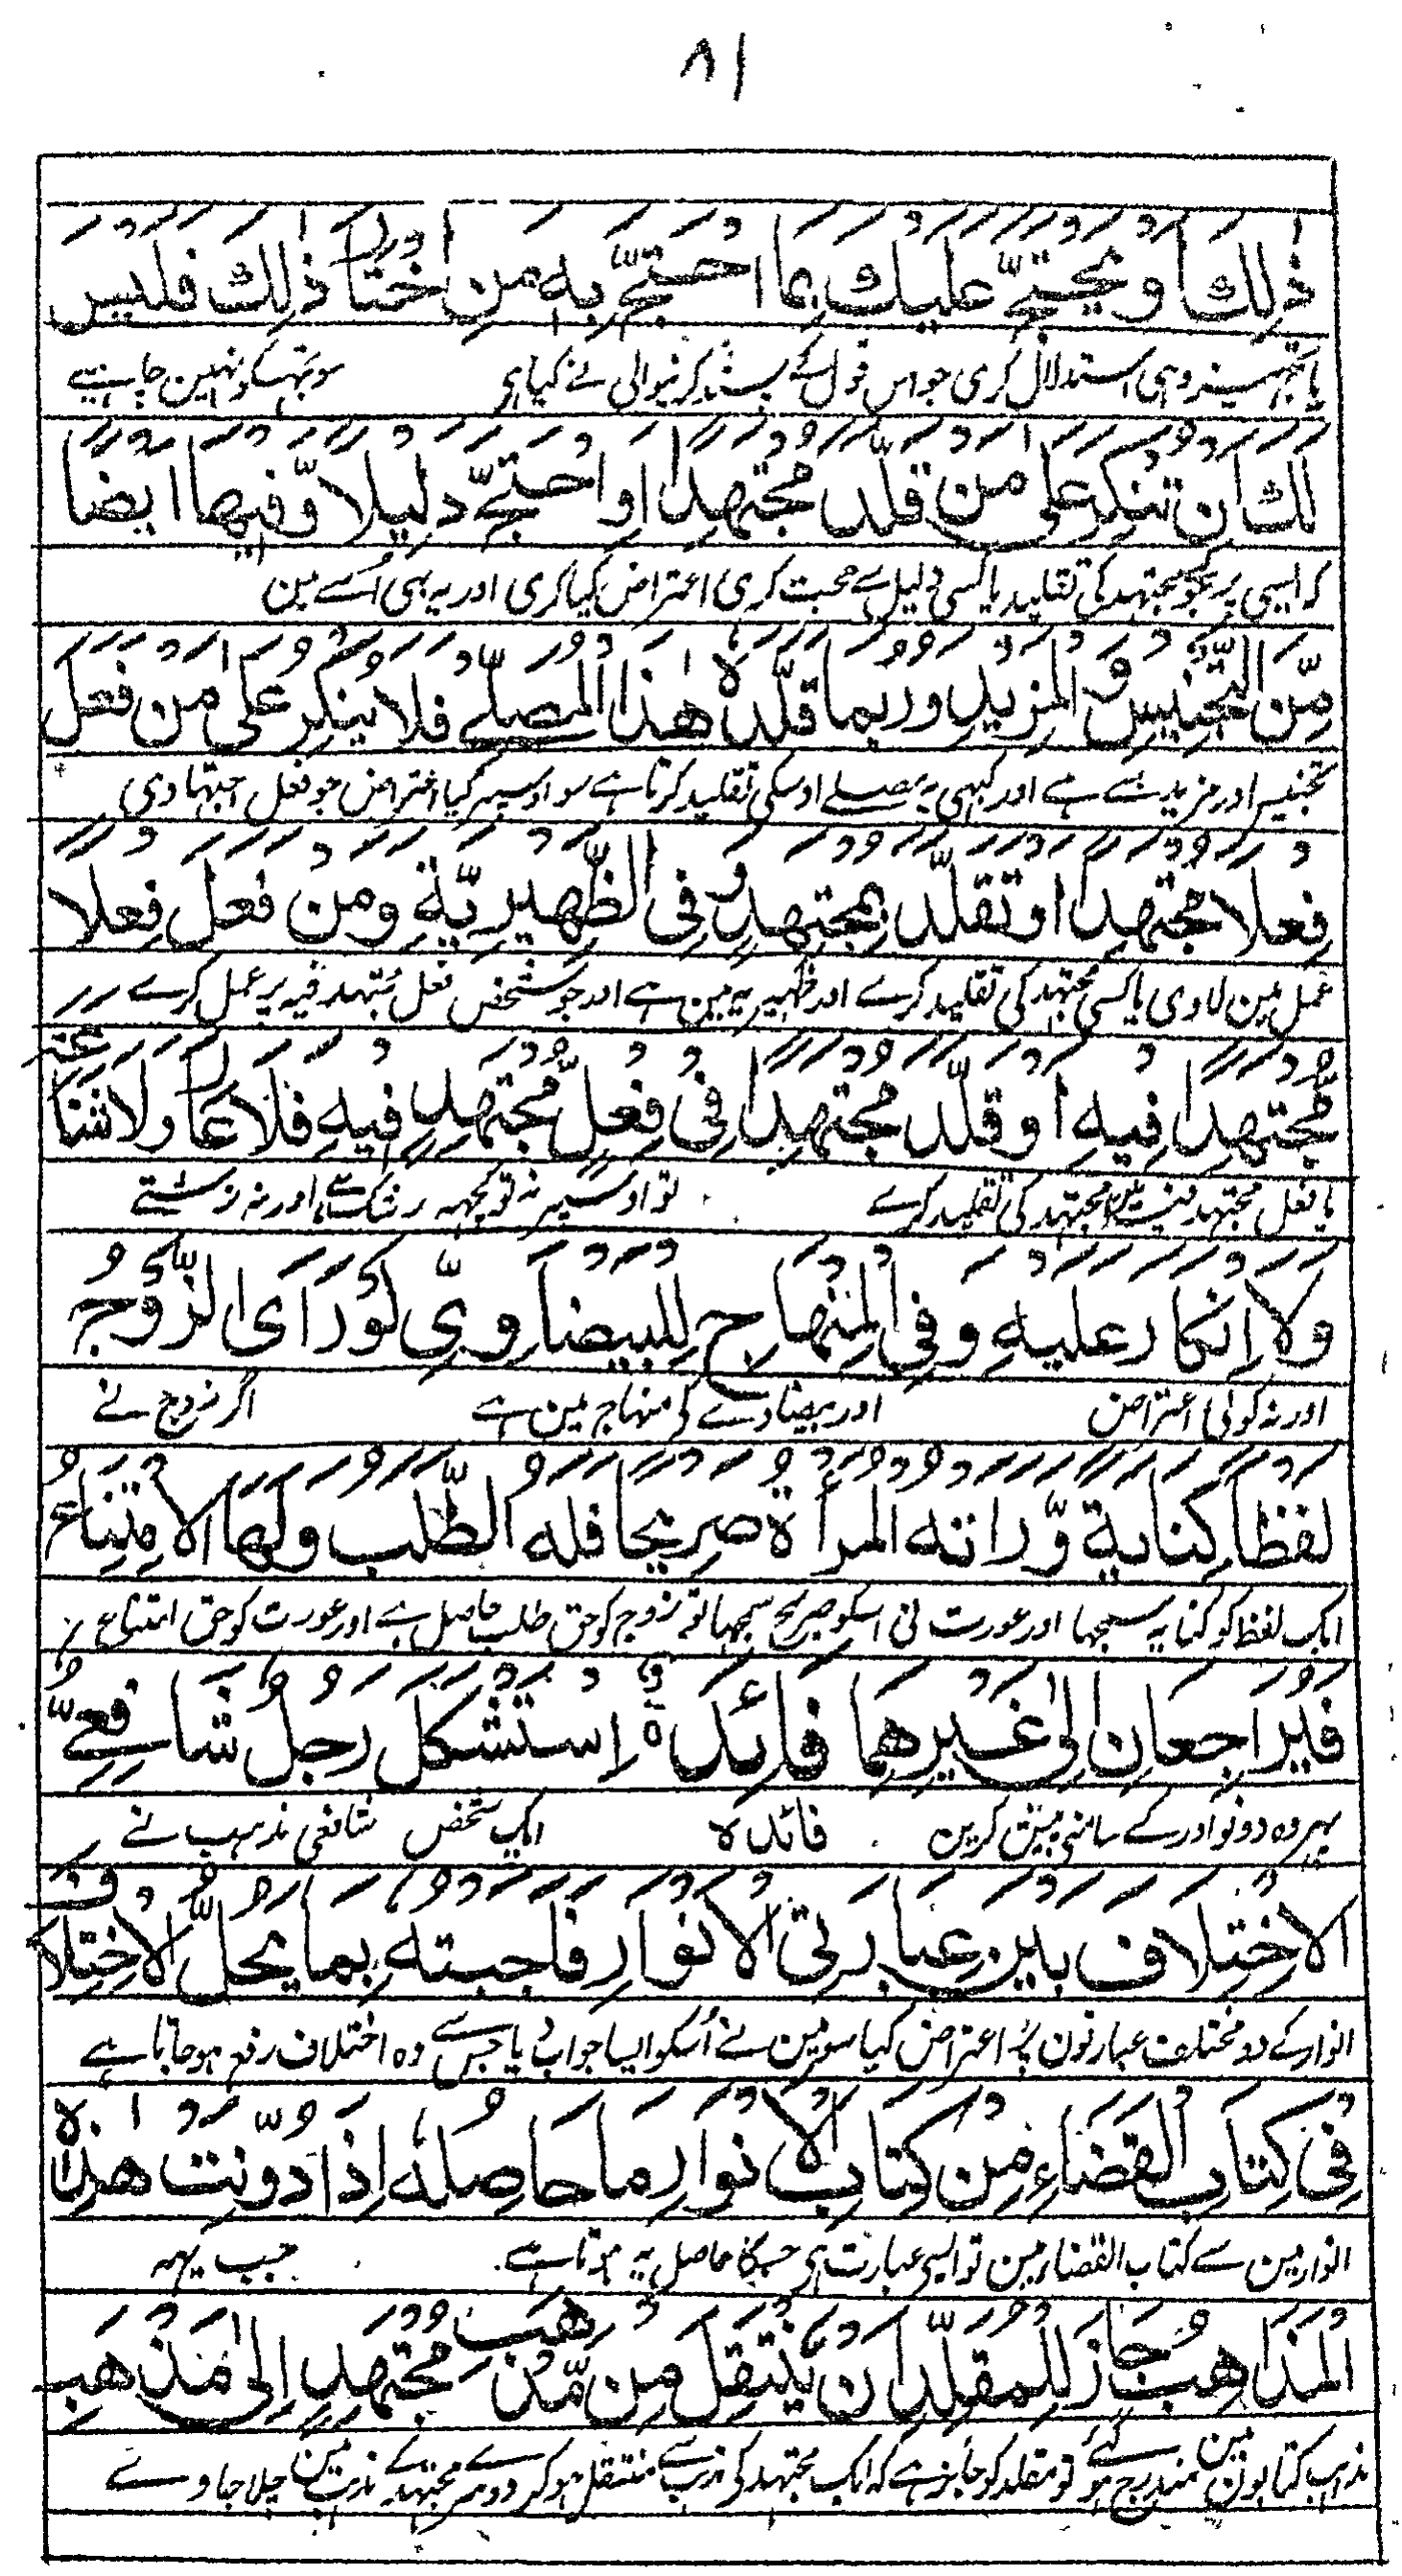 ۸۱
ذٰلِكَ او يحتجّ عليك بما احتجّ به من اختار ذٰلك فليس
يا تجهپر وہی استدلال کری جو اس قول کے پسند کرنیوالی نے کیا ہی سو تجہکو نہین چاہیے
لك ان تنكر على من قلّد مجتهدا او احتجّ دليلا وّفيها ايضا
کہ ایسی پر جو مجتہد کی تقلید یا کسی دلیل سے حجت کری اعتراض کیا کری اور یہ بہی اُسے مین
مّن التّجنيس و المزيد وربما قلّده هٰذا المصلّے فلا ينكر على من فعل
تجنیس اور مزید سے ہے اور کبہی یہ مصلے اوسکی تقلید کرتا ہے سو اوسپر کیا اعتراض جو فعل اجتہادی
فعلا مجتهدا او تقلّد بمجتهد و فى الظّهيريّة ومن فعل فعلا
عمل مین لاوی یا کسی مجتہد کی تقلید کرے اور ظہیریہ مین ہے اور جو شخص فعل مجتہد فیہ پر عمل کرے
مّجتهدا فيه او قلّد مجتهدا فى فعل مّجتهد فيه فلا عار ولا شناعة
یا فعل مجتہد فیہ مین مجتہد کی تقلید کرے تو اوسپر نہ تو کچہہ ننگ ہے اور نہ زشتے
ولا انكار عليه و فى المنهاج للبيضاوىّ لو راى الزّوج
اور نہ کوئی اعتراض اور بیضاوے کی منہاج مین ہے اگر زوج نے
لفظا كناية وّراته المرأة صريحا فله الطّلب ولها الامتناع
ایک لفظ کو کنایہ سمجہا اور عورت نی اسکو صریح سمجہا تو زوج کو حق طلب حاصل ہے اور عورت کو حق امتناع
فيراجعان الى غيرهما فائدة استشكل رجل شافعىّ
پہر وہ دونو اور کے سامنی پیش کرین فائدہ ایک شخص شافعی مذہب نے
الاختلاف بين عبارتى الانوار فاجبته بما يحلّ الاختلاف
انوار کے دو مختلف عبارتون پر اعتراض کیا سو مین نے اُسکو ایسا جواب دیا جس سے وہ اختلاف رفع ہو جاتا ہے
فى كتاب القضاء من كتاب الانوار ما حاصله اذا دوّنت هذه
انوار مین سے کتاب القضا مین تو ایسی عبارت ہی جسکا حاصل یہ ہوتا ہے جب یہہ
المذاهب جاز للمقلّد ان ينتقل من مّذهب مجتهد الى مذهب
مذہب کتابون مین مندرج ہو گئے تو مقلد کو جائز ہے کہ ایک مجتہد کی مذہب سے منتقل ہو کر دوسرے مجتہد کے مذہب مین چلا جاوے